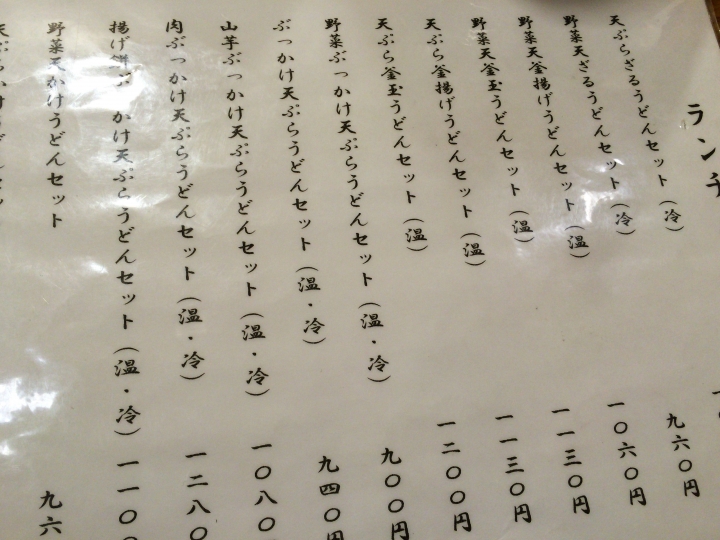 ランチ
天ぷらざるうどんセット(冷)
野菜天ざるうどんセット(冷) 九六〇円
野菜天釜揚げうどんセット(温) 一〇六〇円
野菜天釜玉うどんセット(温) 一一三〇円
天ぷら釜揚げうどんセット(温) 一一三〇円
天ぷら釜玉うどんセット(温) 一二〇〇円
野菜ぶっかけ天ぷらうどんセット(温・冷) 九〇〇円
ぶっかけ天ぷらうどんセット(温・冷) 九四〇円
山芋ぶっかけ天ぷらうどんセット(温・冷) 一〇八〇
肉ぶっかけ天ぷらうどんセット(温・冷) 一二八〇
揚げ餅ぶっかけ天ぷらうどんセット(温・冷) 一一〇〇
野菜天かけうどんセット 九六